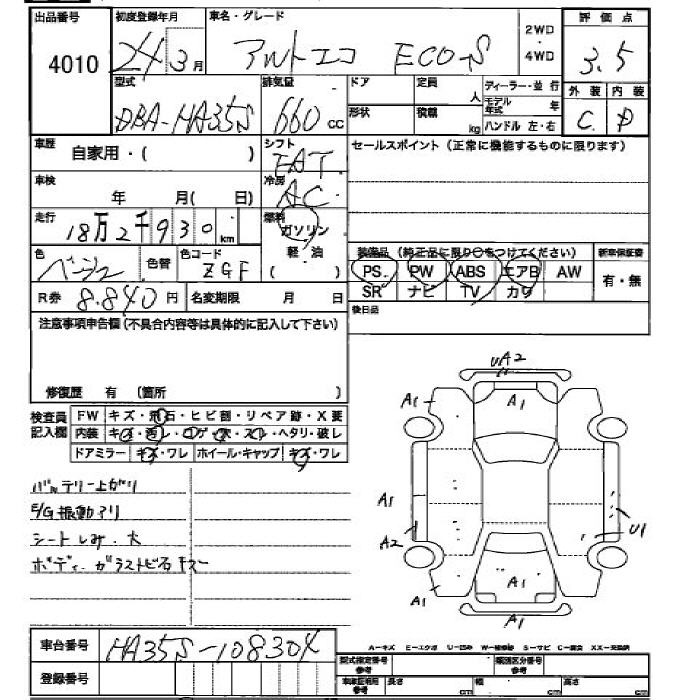 出品番号 初度登録年月 車名・グレード 2WD・4WD 評価点
4010 24年3月 アルトエコ ECO-S 3.5
型式 排気量 ドア 定員 人 ディーラー・並行 外装 内装
DBA-HA35S 660cc 形状 積載 kg モデル年式 年 ハンドル 左・右 C. D
車歴 自家用・( ) シフト FAT セールスポイント(正常に機能するものに限ります)
車検 年 月( 日) 冷房 AC
走行 18万2千930km 燃料 ガソリン
軽・油
( )
色 ベージュ 色替 色コード ZGF
装備品(純正品に限り○をつけてください) 新車保証書
PS. PW ABS エアB AW 有・無
SR ナビ TV カワ
R券 8.840円 名変期限 月 日 後日品
注意事項申告欄(不具合内容等は具体的に記入して下さい)
修復歴 有 (箇所 )
検査員記入欄 FW キズ・飛石・ヒビ割・リペア跡・X要
内装 キズ・汚レ・コゲ・穴・スレ・ヘタリ・破レ
ドアミラー キズ・ワレ ホイール・キャップ キズ・ワレ
バッテリー上がり
E/G振動アリ
シートしみ.大
ボディ.ガラストビ石キズ
UA2
A1 A1
A1
A2 U1
A1
A1 A1
車台番号 HA35S-108304
登録番号
A-キズ E-エクボ U-凹み W-補修跡 S-サビ C-腐食 XX-交換済
型式指定番号 類別区分番号
車庫証明用参考 長さ cm 幅 cm 高さ cm